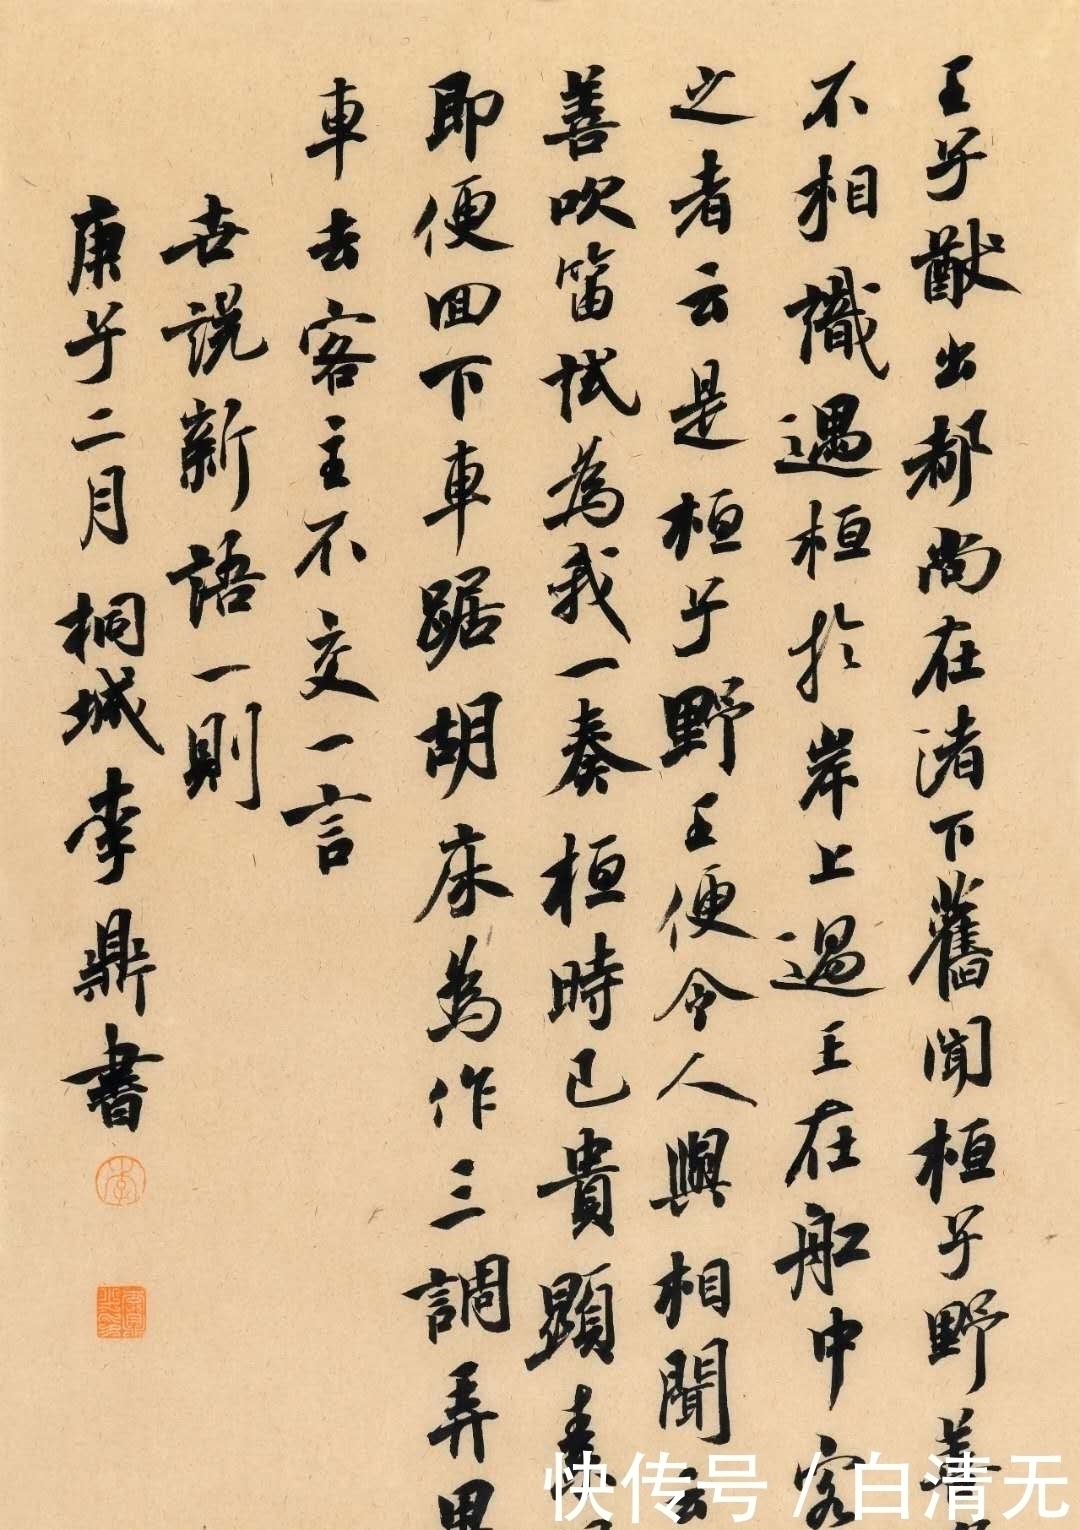 王子猷出都尚在渚下舊聞桓子野善
不相識遇桓於岸上過王在舡中客
之者云是桓子野王便令人與相聞云
善吹笛試為我一奏桓時已貴顯素
即便回下車踞胡床為作三調弄畢
車去客主不交一言
世說新語一則
庚子二月 桐城李鼎書
李
快传号 / 白清无